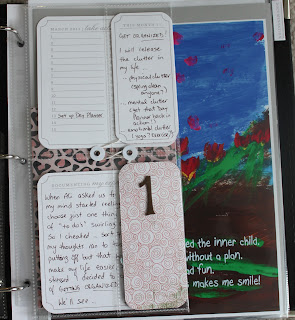 MARCH 2011
1 Set up Day Planner
GET ORGANIZED!
I will release
the clutter in
my life...
- physical clutter
(spring clean
anyone?)
- mental clutter
(get that Day
Planner back in
action!)
- emotional clutter
(yoga? Exercise?)
When Ali asked us to
my mind started reeling
choose just one thing
of "to do's" swirling
So I cheated... sort
my thoughts ran to
putting off but that
make my life easier,
I decided to
GETTING ORGANIZED!
We'll see...
1
ed the inner child.
without a plan.
ad fun.
s makes me smile!